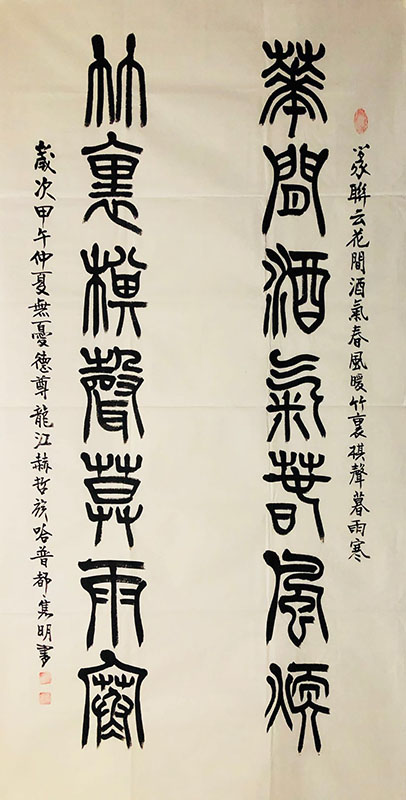 篆聯云花間酒氣春風暖竹裏棋聲暮雨寒
華間酒氣春風渜
竹裏棋聲莫雨寒
歲次甲午仲夏無憂德尊龍江赫哲族哈普都·隽明書